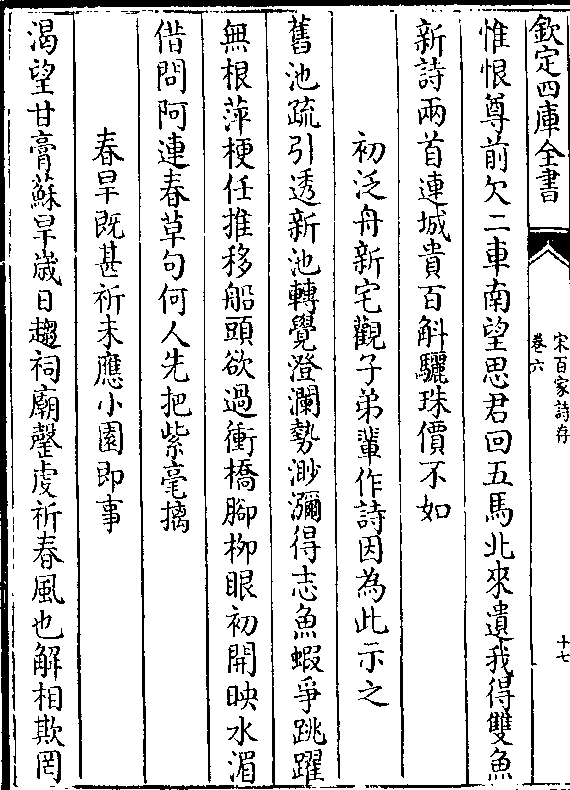 欽定四庫全書
宋百家詩存
卷六
十七
惟恨尊前欠二車南望思君回五馬北來遺我得雙魚
新詩兩首連城貴百斛驪珠價不如
初泛舟新宅觀子弟輩作詩因為此示之
舊池疏引透新池轉覺澄瀾勢渺瀰得志魚蝦爭跳躍
無根萍梗任推移船頭欲過衝橋腳栁眼初開映水湄
借問阿連春草句何人先把紫毫摛
春旱既甚祈未應小園即事
渴望甘膏蘇旱歳日趨祠廟罄䖍祈春風也解相欺罔